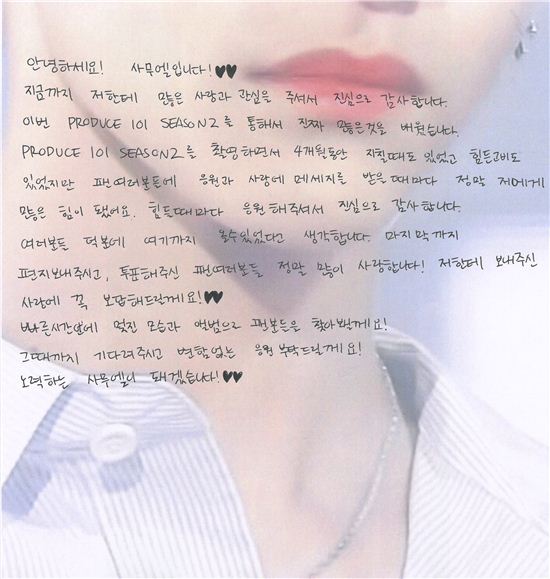 안녕하세요! 사무엘입니다!♥♥
지금까지 저한테 많은 사랑과 관심을 주셔서 진심으로 감사합니다.
이번 PRODUCE 101 SEASON2를 통해서 진짜 많은것을 배웠습니다.
PRODUCE 101 SEASON2를 촬영하면서 4개월동안 지칠때도 있었고 힘든고비도
있었지만 팬여러분들에 응원과 사랑에 메세지를 받을때마다 정말 저에게
많은 힘이 됐어요. 힘들때마다 응원해주셔서 진심으로 감사합니다.
여러분들 덕분에 여기까지 올수있었다고 생각합니다. 마지막까지
편지보내주시고, 투표해주신 팬여러분들 정말 많이 사랑합니다! 저한테 보내주신
사랑에 꼭 보답해드릴께요!♥
빠른시간안에 멋진 모습과 앨범으로 팬분들을 찾아뵐께요!
그때까지 기다려주시고 변함없는 응원 부탁드릴께요!
노력하는 사무엘이 돼겠습니다!♥♥